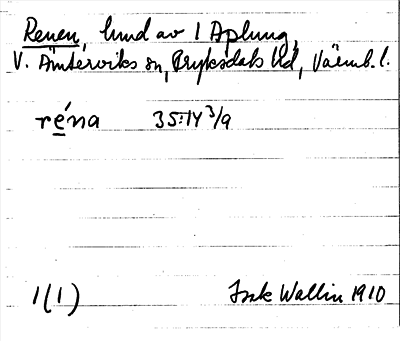 Renen, lund av 1 Aplung,
V. Ämterviks sn, Fryksdals hd, Värml. l.
réna 35:14 3/9
1(1) Insk Wallin 1910